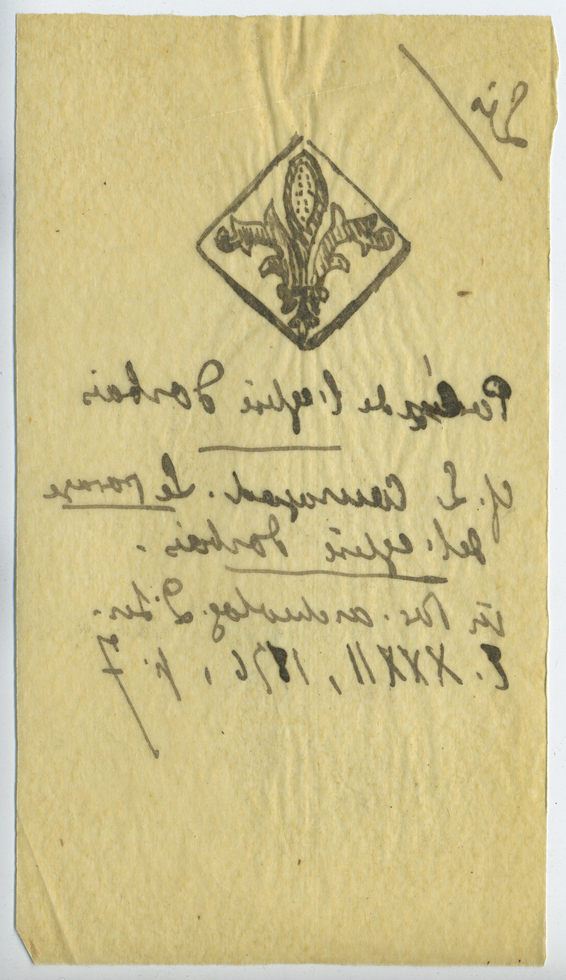 Pavé de l'eglise d'orbais
cf. L. Courajod. Le pavage
de l'eglise d'orbais.
in Rev. archeolog. 2e ser.
t. XXXII, 1876, p. 7